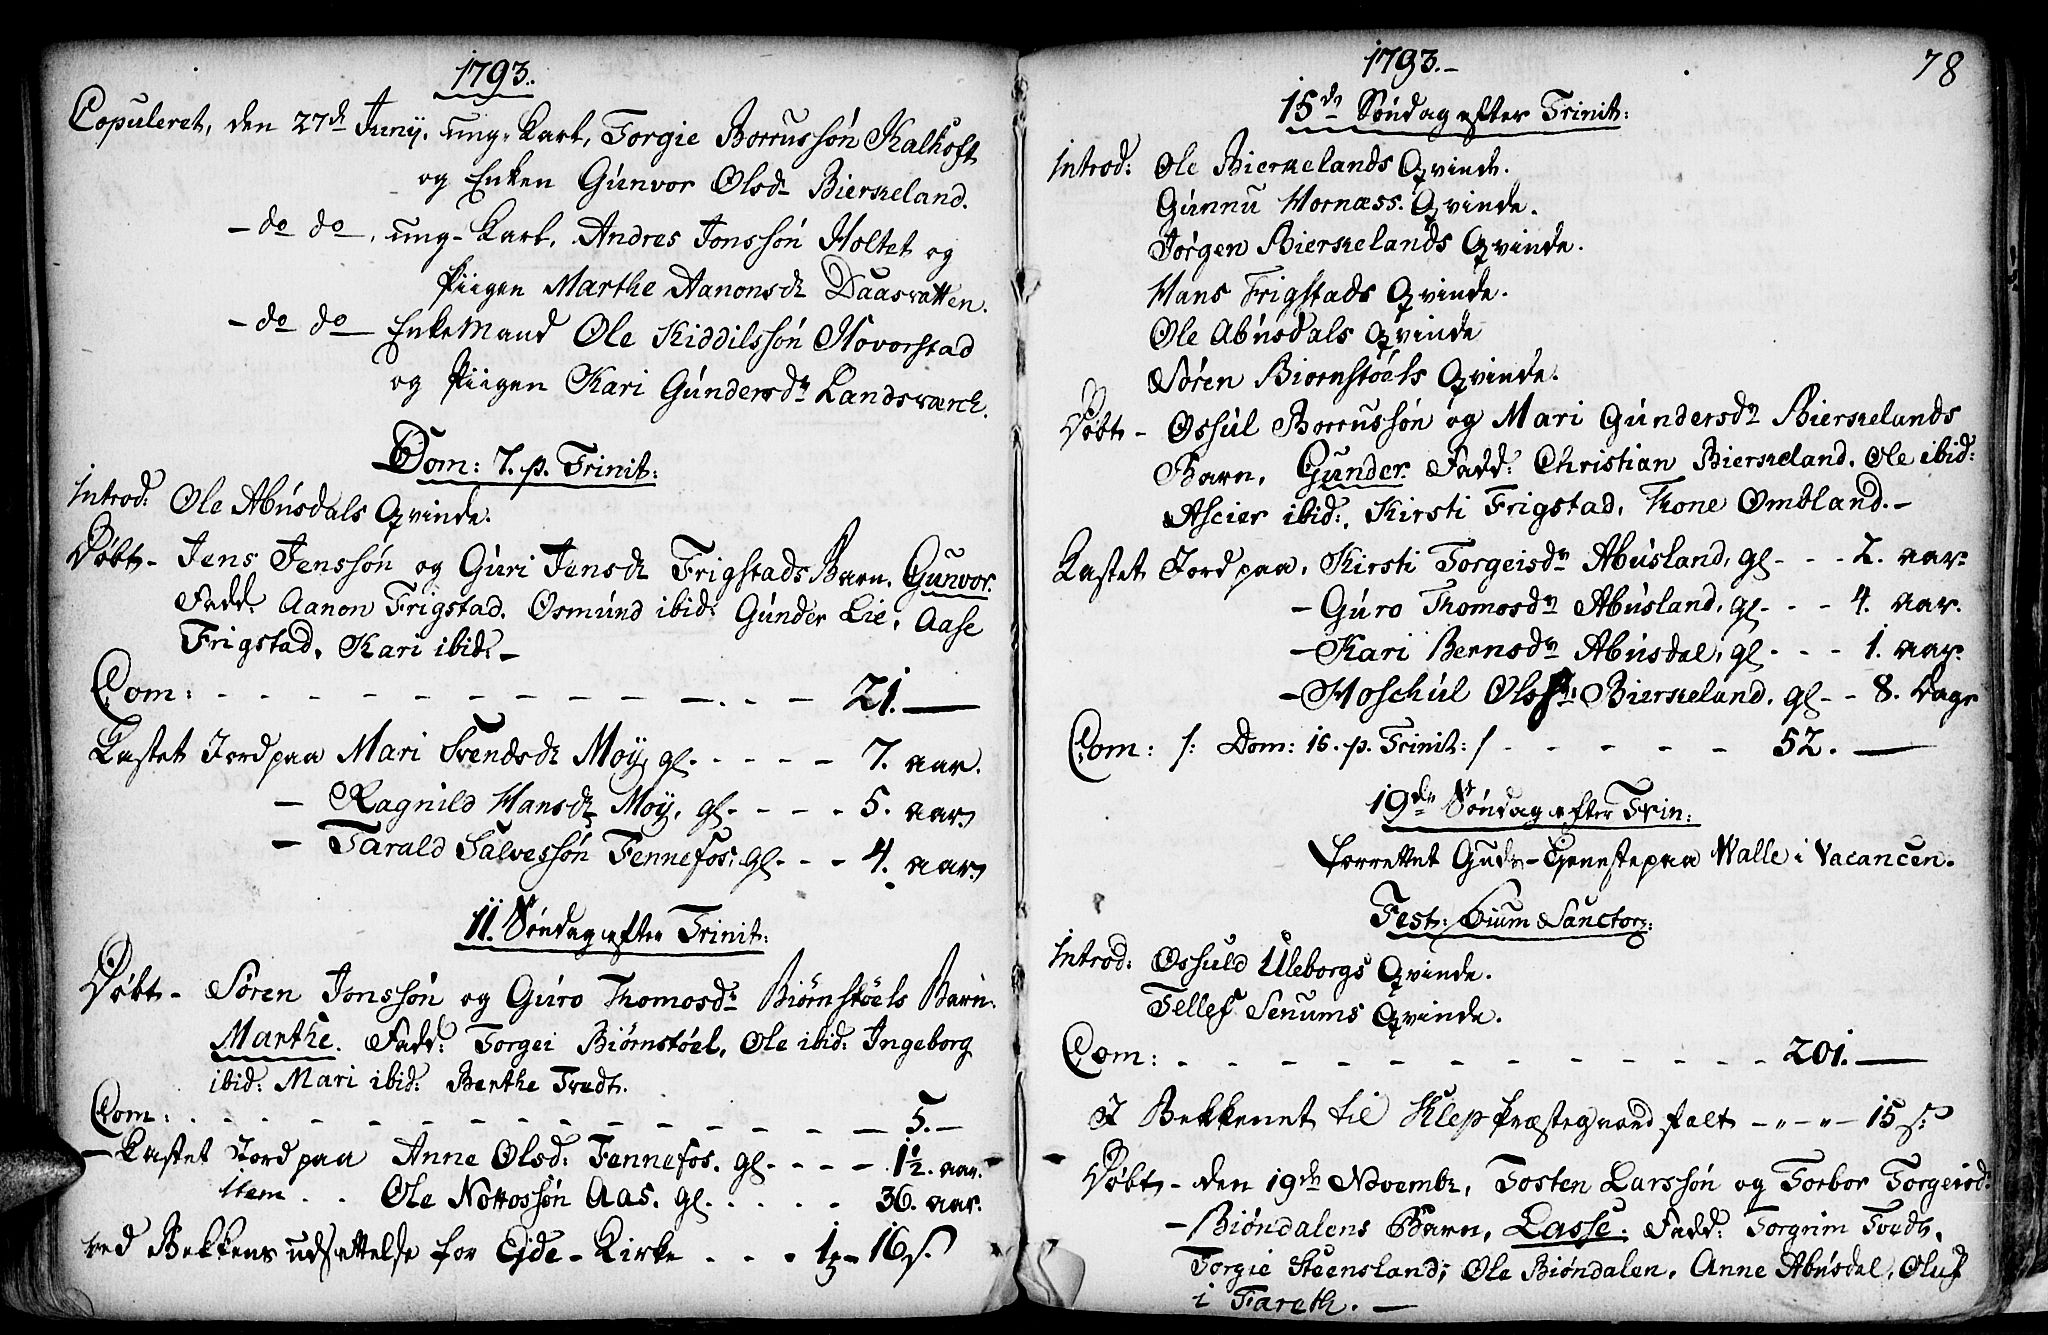 1793.
Copuleret, den 27de Junij, ung-Karl, Torgie Borrussøn Kalhoft
og Enken Gunvor Olsdr Bierkeland.
- do do, ung-Karl, Andres Jonssøn Holtet og
Piigen Marthe Aanonsdr Daasvatten.
- do do - Enke Mand Ole Kiddilssøn Hovorstad
og Piigen Kari Gundersdr Landsværk.
Dom: 7. p. Trinit:
Introd: Ole Abusdals Qvinde.
Døbt - Jens Jenssøn og Guri Jensdr Frigstads Barn, Gunvor.
Fadd: Aanon Frigstad, Osmund ibid: Gunder Lie, Aase
Frigstad, Kari ibid: -
Com: - - - - - - - - - - - - 21. -
Kastet Jord paa Mari Svendsdr Moÿ, gl. - - - - 7. aar.
- Ragnild Hansdr Moÿ, gl. - - - - 5. aar.
- Tarald Salvessøn Fennefos: gl. - - - 4. aar.
11. Søndag efter Trinit:
Døbt - Søren Jonssøn og Guro Thomosdr Biørnstøels Barn.
Marthe. Fadd: Torgei Biørnstøel, Ole ibid: Ingeborg
ibid: Mari ibid: Berthe Tvedt.
Com: - - - - - - - - - - - - 5. -
- Kastet Jord paa Anne Olsd: Fennefos. gl. - - - - 1½. aar.
item . . Ole Nottossøn Aas. gl. . . . . - 36. aar.
ved Bekkens udsættelse for Ejde-Kirke . . . . 1 - 16 s.
1793. - 78
15de Søndag efter Trinit:
Introd: Ole Bierkelands Qvinde.
Gunnu Hornæss. Qvinde.
Jørgen Bierkelands Qvinde.
Hans Frigstads Qvinde.
Ole Abusdals Qvinde
Søren Biornstøels Qvinde.
Døbt - Ossul Borrussøn og Mari Gundersdr Bierkelands
Barn, Gunder. Fadd: Christian Bierkeland, Ole ibid:
Ascier ibid:, Kirsti Frigstad, Thone Ombland. -
Kastet Jord paa, Kirsti Torgeisdr Abusland, gl - - - 2. aar.
- Guro Thomosdr Abusland, gl - - - 4. aar.
- Kari Bernsdr Abusdal, gl - - - 1. aar.
- Hoschul Ols: Bierkeland, gl - - 8. Dage
Com: /: Dom: 15. p. Trinit: / - - - - - 52. -
19de Søndag efter Trin:
forrettet Guds-Tieneste paa Walle i Vacancen.
Fest: Oium Sanctor:
Introd: Ossuld Uleborgs Qvinde.
Tellef Senums Qvinde.
Com: - - - - - - - - - - - - 201. -
I Bekkenet til Klep Præstegaard falt - " - " - 15 s:
Døbt - den 19de Novembr, Tosten Larssøn og Torbor Torgeisd:
- Biøndalens Barn, Lasse: Fadd: Torgrim Tvedt,
Torgie Steensland, Ole Biøndalen, Anne Abusdal, Oluf
i Fareth. -